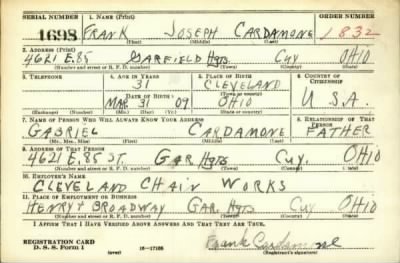 SERIAL NUMBER 1. NAME (Print) ORDER NUMBER
1698 FRANK JOSEPH CARDAMONE 1832
(First) (Middle) (Last)
2. ADDRESS (Print)
4621 E. 85 GARFIELD Hgts Cuy OHIO
(Number and street or R. F. D. number) (Town) (County) (State)
3. TELEPHONE 4. AGE IN YEARS 5. PLACE OF BIRTH 6. COUNTRY OF CITIZENSHIP
31 CLEVELAND
DATE OF BIRTH (Town or county)
MAR 31 09 OHIO U.S.A.
(Exchange) (Number) (Mo.) (Day) (Yr.) (State or country)
7. NAME OF PERSON WHO WILL ALWAYS KNOW YOUR ADDRESS 8. RELATIONSHIP OF THAT PERSON
GABRIEL CARDAMONE FATHER
(Mr., Mrs., Miss) (First) (Middle) (Last)
9. ADDRESS OF THAT PERSON
4621 E. 85 ST. GAR Hgts Cuy. OHIO
(Number and street or R. F. D. number) (Town) (County) (State)
10. EMPLOYER'S NAME
CLEVELAND CHAIN WORKS
11. PLACE OF EMPLOYMENT OR BUSINESS
HENRY + BROADWAY GAR. Hgts Cuy OHIO
(Number and street or R. F. D. number) (Town) (County) (State)
I AFFIRM THAT I HAVE VERIFIED ABOVE ANSWERS AND THAT THEY ARE TRUE.
REGISTRATION CARD
D. S. S. Form 1 16—17105 Frank Cardamone
(over) (Registrant's signature)